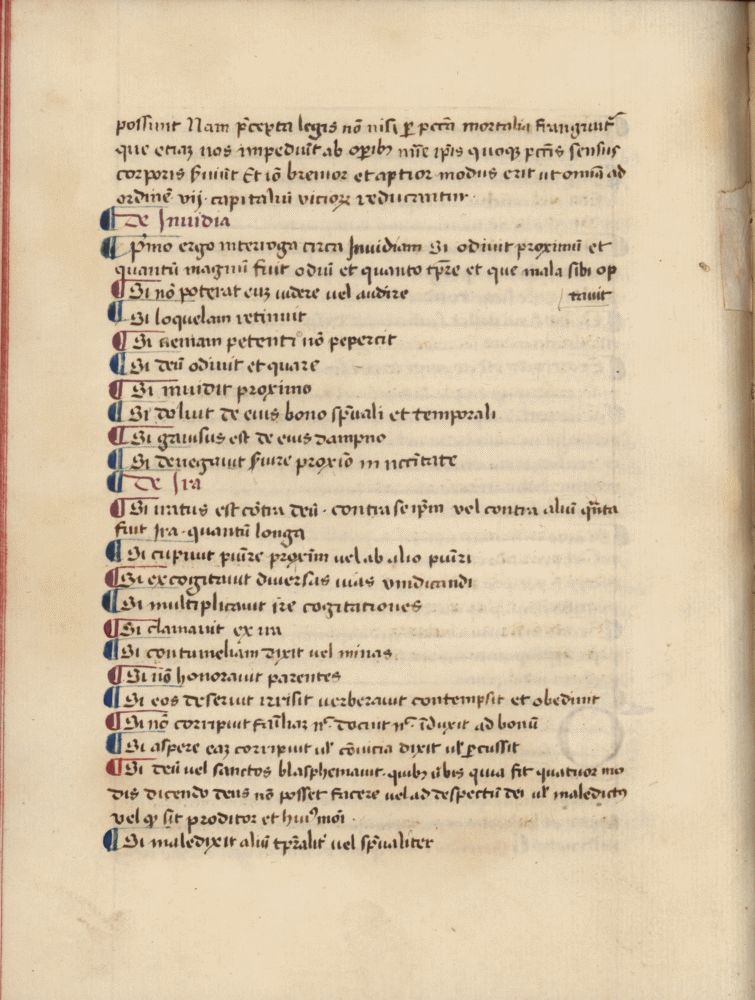 possunt Nam p̄cepta legis nō nisi ꝑ pccā mortalia frangunt᷑
que etiaꝫ nos impediūt ab oꝑibꝫ nīe ip̄is quoqꝫ pctīs sensus
corporis ẜuiūt Et iō breuior et aptior modus erit ut omīa ad
ordinē vij. capitaliū vicioꝝ reducantur.
De Inuidia
P̄mo ergo interroga circa Inuidiam Si odiuit proximū et
quantū magnū fuit odiū et quanto tꝑe et que mala sibi op
Si nō poterat euꝫ uidere uel audire tauit
Si loquelam retinuit
Si ueniam petenti nō pepercit
Si deū odiuit et quare
Si inuidit proximo
Si doluit de eius bono sp̄uali et temporali
Si gauisus est de eius dampno
Si denegauit ẜuire proxīo in nccītate
De Ira
Si iratus est cōtra deū. contra se ip̄m vel contra aliū q̄nta
fuit Ira. quantū longa
Si cupiuit puīre proxīm uel ab alio puīri
Si excogitauit diuersas uias vindicandi
Si multiplicauit ire cogitationes
Si clamauit ex ira
Si contumeliam dixit uel minas
Si nō honorauit parentes
Si eos deseruit irrisit uerberauit contempsit et obediuit
Si nō corripuit famīliaꝫ nͨ. docuit nͨ. īduxit ad bonū
Si aspere eaꝫ corripuit uł cōuicia dixit uł ꝑcussit
Si deū vel sanctos blasphemauit. quibꝫ ūbis quia fit quatuor mo
dis dicendo deus nō posset facere uel ad despectū dei uł maledictꝰ
vel ꝙ sit proditor et huiꝰmōi.
Si maledixit aliū tꝑalit᷑ vel sp̄ualiter